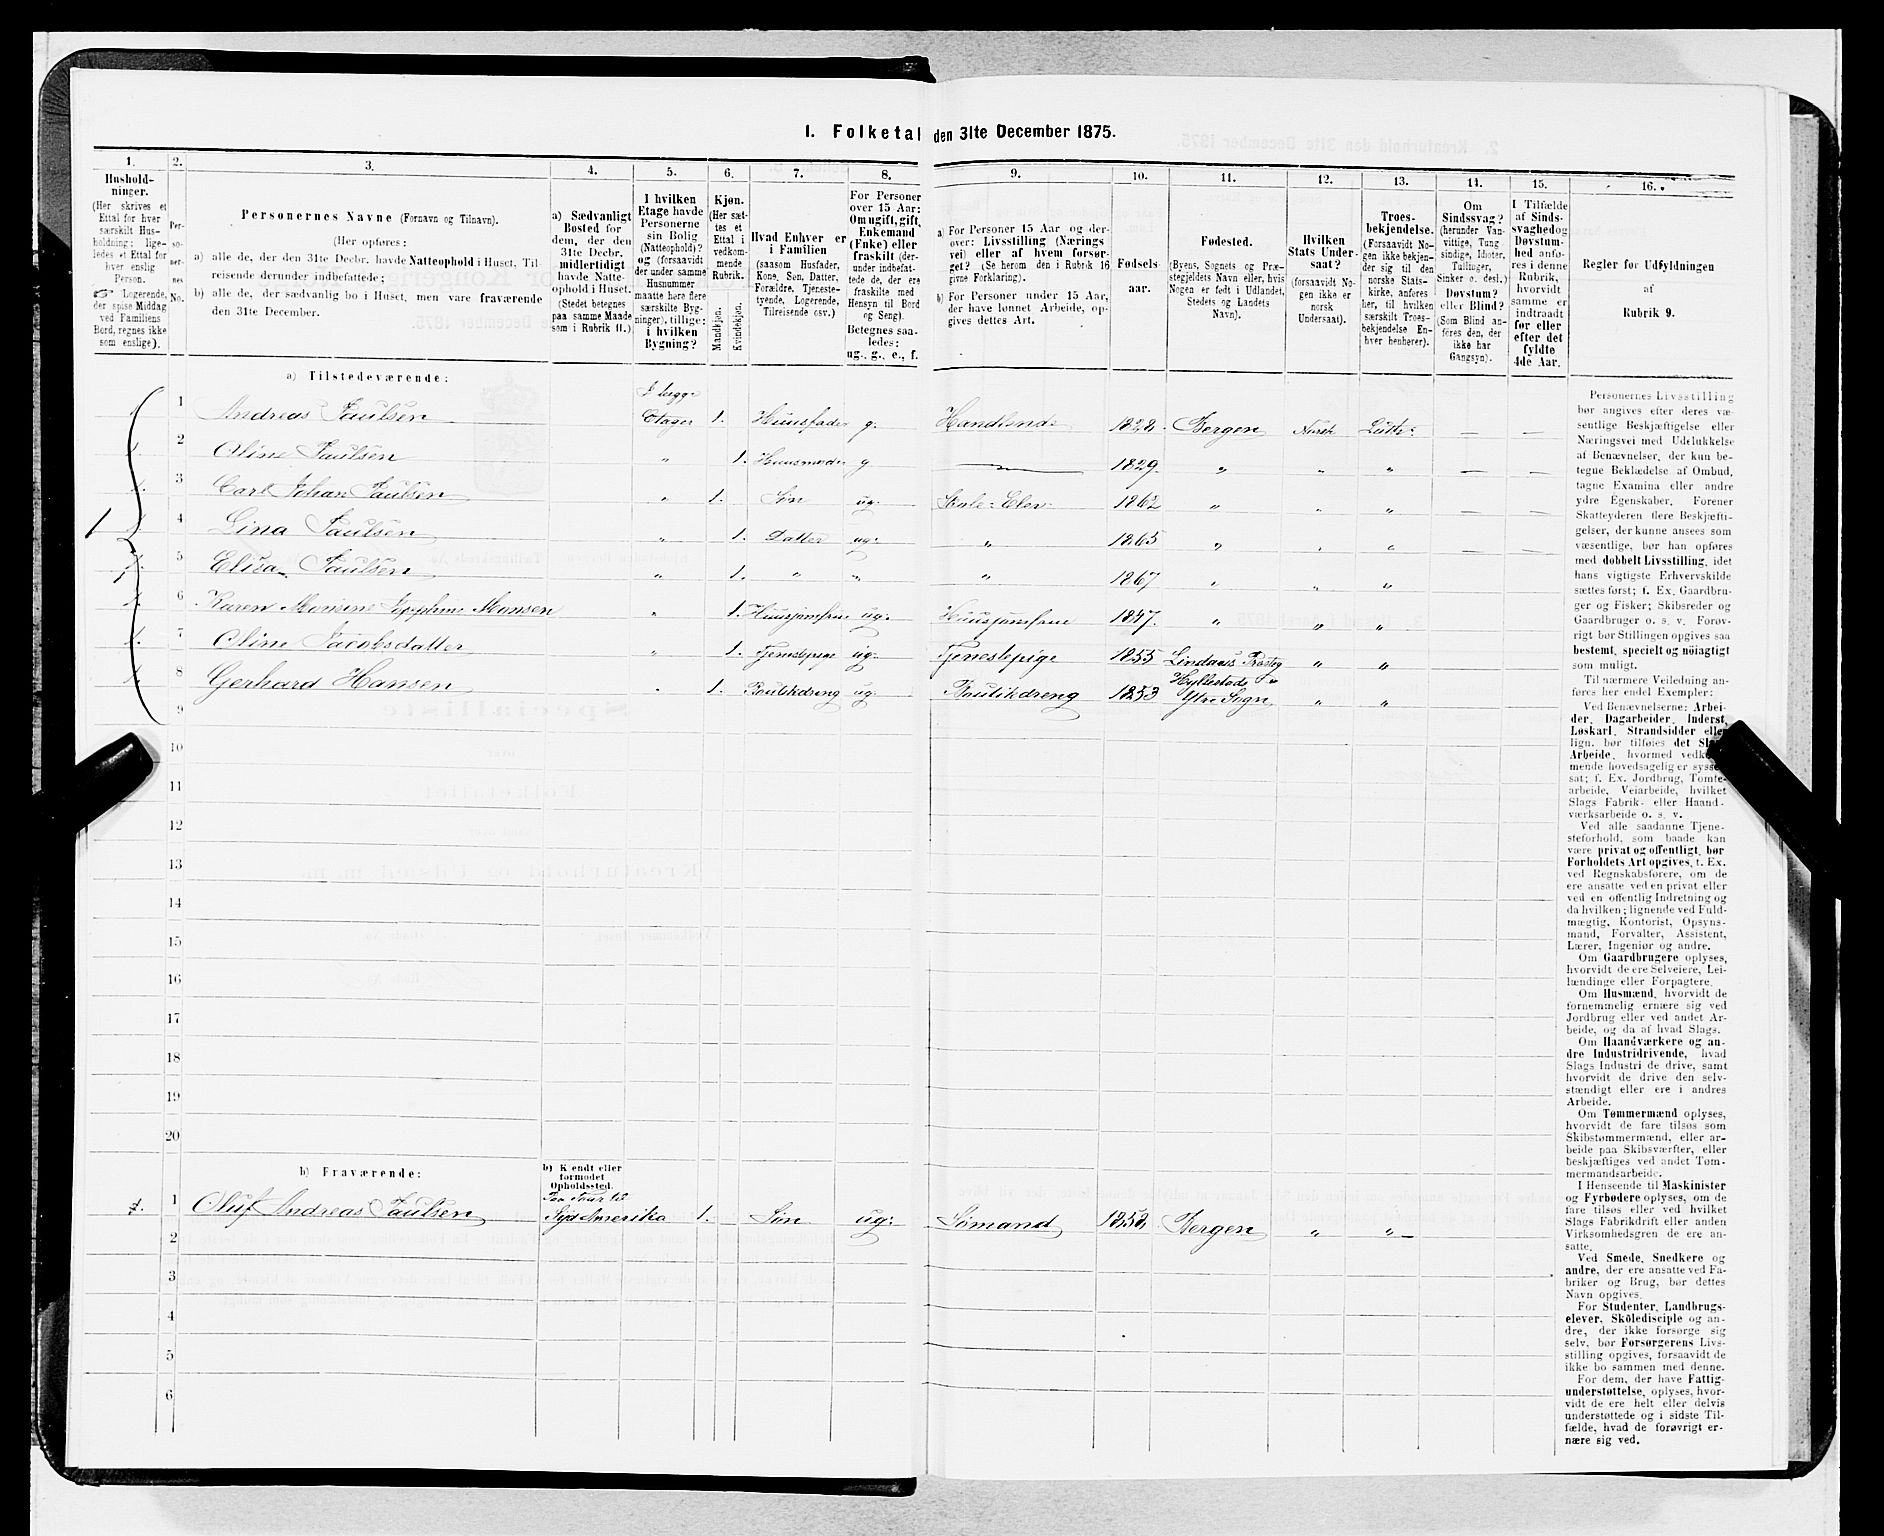 I. Folketal den 31te December 1875.
1. 2. 3. 4. 5. 6. 7. 8. 9. 10. 11. 12. 13. 14. 15. 16.
Husholdninger.
(Her skrives et
Ettal for hver
særskilt Husholdning;
ligeledes et Ettal for
hver enslig
Person.
Logerende,
der spise Middag
ved Familiens
Bord, regnes ikke
som enslige).
Personernes No.
Personernes Navne (Fornavn og Tilnavn).
(Her opføres:
a) alle de, der den 31te Decbr. havde Natteophold i Huset, Tilreisende derunder indbefattede;
b) alle de, der sædvanlig bo i Huset, men vare fraværende
den 31te December.
a) Sædvanligt
Bosted for
dem, der den
31te Decbr.
midlertidigt
havde Natteophold i Huset.
(Stedet betegnes
paa samme Maade
som i Rubrik 11.)
I hvilken
Etage havde
Personerne
sin Bolig
(Natteophold)?
og (forsaavidt
der under samme
Husnummer
maatte høre flere
særskilte Bygninger), tillige:
i hvilken
Bygning?
Kjøn.
(Her sættes et
Ettal i
vedkommende
Rubrik.
Mandkjøn.
Kvindekjøn.
Hvad Enhver er
i Familien
(saasom Husfader,
Kone, Søn, Datter,
Forældre, Tjenestetyende, Logerende,
Tilreisende osv.)
For Personer
over 15 Aar:
Om ugift, gift,
Enkemand
(Enke) eller
fraskilt (derunder indbefattede, de, der ere
fraskilte med
Hensyn til Bord
og Seng).
Betegnes saaledes:
ug., g., e., f.
a) For Personer 15 Aar og derover: Livsstilling (Næringsvei) eller af hvem forsørget? (Se herom den i Rubrik 16
givne Forklaring).
b) For Personer under 15 Aar,
der have lønnet Arbeide, opgives dettes Art.
Fødselsaar.
Fødested.
(Byens, Sognets og Præstegjeldets Navn eller, hvis
Nogen er født i Udlandet,
Stedets og Landets
Navn).
Hvilken
Stats Undersaat?
(forsaavidt Nogen ikke er
norsk
Undersaat).
Troesbekjendelse.
(Forsaavidt Nogen ikke bekjender sig til den
norske Statskirke, anføres
her, til hvilken
særskilt Troesbekjendelse Enhver henhører).
Om
Sindssvag?
(herunder Vanvittige, Tungsindige, Idioter,
Tullinger,
Sinker o. desl.)
Døvstum?
eller Blind?
(Som Blind anføres den, der
ikke har
Gangsyn).
I Tilfælde
af Sindssvaghed og
Døvstumhed anføres i denne
Rubrik,
hvorvidt
samme er
indtraadt
før eller
efter det
fyldte
4de Aar.
Regler for Udfyldningen
af
Rubrik 9.
a) Tilstedeværende:
1 Andreas Paulsen I begge Etager 1. Huusfader g. 1828 Bergen Norsk Luth:
2 Oline Paulsen " 1. Huusmoder g 1829 " " "
3 Carl Johan Paulsen " 1. Søn ug. Skole-Elev 1862 " " "
4 Lina Paulsen " 1. Datter ug: " 1865 " " "
5 Elisa Paulsen " 1. " " " 1867 " " "
6 Karen Monsen " 1. Huusjomfrue ug: Huusjomfrue 1847. " " "
7 Oline Jacobsdatter " 1. Tjenestepige ug: Tjenestepige 1855 Lindaas " "
8 Gerhard Hansen " 1. Boutikdreng ug: Boutikdreng 1853 Hyllestads Ytre Sogn " "
9
10
11
12
13
14
15
16
17
18
19
20
b) Fraværende:
b) Kjendt eller
formodet
Opholdssted.
1 Oluf Andreas Paulsen Paa Tour til Syd Amerika 1. Søn ug: Sømand 1858 Bergen " "
2
3
4
5
6
Personernes Livsstilling
bør angives efter deres væsentlige Beskjæftigelse eller
Næringsvei med Udelukkelse
af Benævnelser, der kun betegne Beklædelse af Ombud,
tagne Examina eller andre
ydre Egenskaber. Forener
Skatteyderen flere Beskjæftigelser, der kunne ansees som
væsentlige, bør han opføres
med dobbelt Livsstilling, idet
hans vigtigste Erhvervskilde
sættes først; f. Ex. Gaardbruger og Fisker; Skibsreder og
Gaardbruger o. s. v. Forøvrigt bør Stillingen opgives saa
bestemt, specielt og nøiagtigt
som muligt.
Til nærmere Veiledning anføres her endel Exempler:
Ved Benævnelserne: Arbeider, Dagarbeider, Inderst,
Løskarl, Strandsidder eller
lign. bør tilføies det Slags
Arbeide, hvormed vedkommende hovedsagelig er sysselsat; f. Ex. Jordbrug, Tomtearbeide, Veiarbeide, hvilket
Slags Fabrik- eller Haandværksarbeide o. s. v.
Ved alle saadanne Tjenesteforhold, som baade kan
være privat og offentligt, bør
Forholdets Art opgives, t. Ex.
ved Regnskabsførere, om de
ere ansatte ved en privat eller
ved en offentlig Indretning og
da hvilken; lignende ved Fuldmægtig, Kontorist, Opsynsmand, Forvalter, Assistent,
Lærer, Ingeniør og andre.
Om Gaardbrugere oplyses,
hvorvidt de ere Selveiere, Leilændinge eller Forpagtere.
Om Husmænd, hvorvidt de
fornemmelig ernære sig ved
Jordbrug eller ved andet Arbeide, og da af hvad Slags.
Om Haandværkere og andre Industridrivende, hvad
Slags Industri de drive, samt
hvorvidt de drive den selvstændigt eller ere i andres
Arbeide.
Om Tømmermænd oplyses,
hvorvidt de fare tilsøs som
Skibstømmermænd, eller arbeide paa Skibsværfter, eller
beskjæftiges ved andet Tømmermandsarbeide.
I Henseende til Maskinister
og Fyrbødere oplyses, om de
fare tilsøs eller ved hvilket
Slags Fabrikdrift eller anden
Virksomhedsgren de ere ansatte.
Ved Smede, Snedkere og
andre, der ere ansatte ved Fabriker og Brug, bør dettes
Navn opgives.
For Studenter, Landbrugselever, Skoledisciple og andre, der ikke forsørge sig
selv, bør Forsørgerens Livsstilling opgives, forsaavidt de
ikke bo sammen med denne.
For dem, der have Fattigunderstøttelse, oplyses, hvorvidt de ere helt eller delvis
understøttede og i sidste Tilfælde, hvad de forøvrigt ernære sig ved.